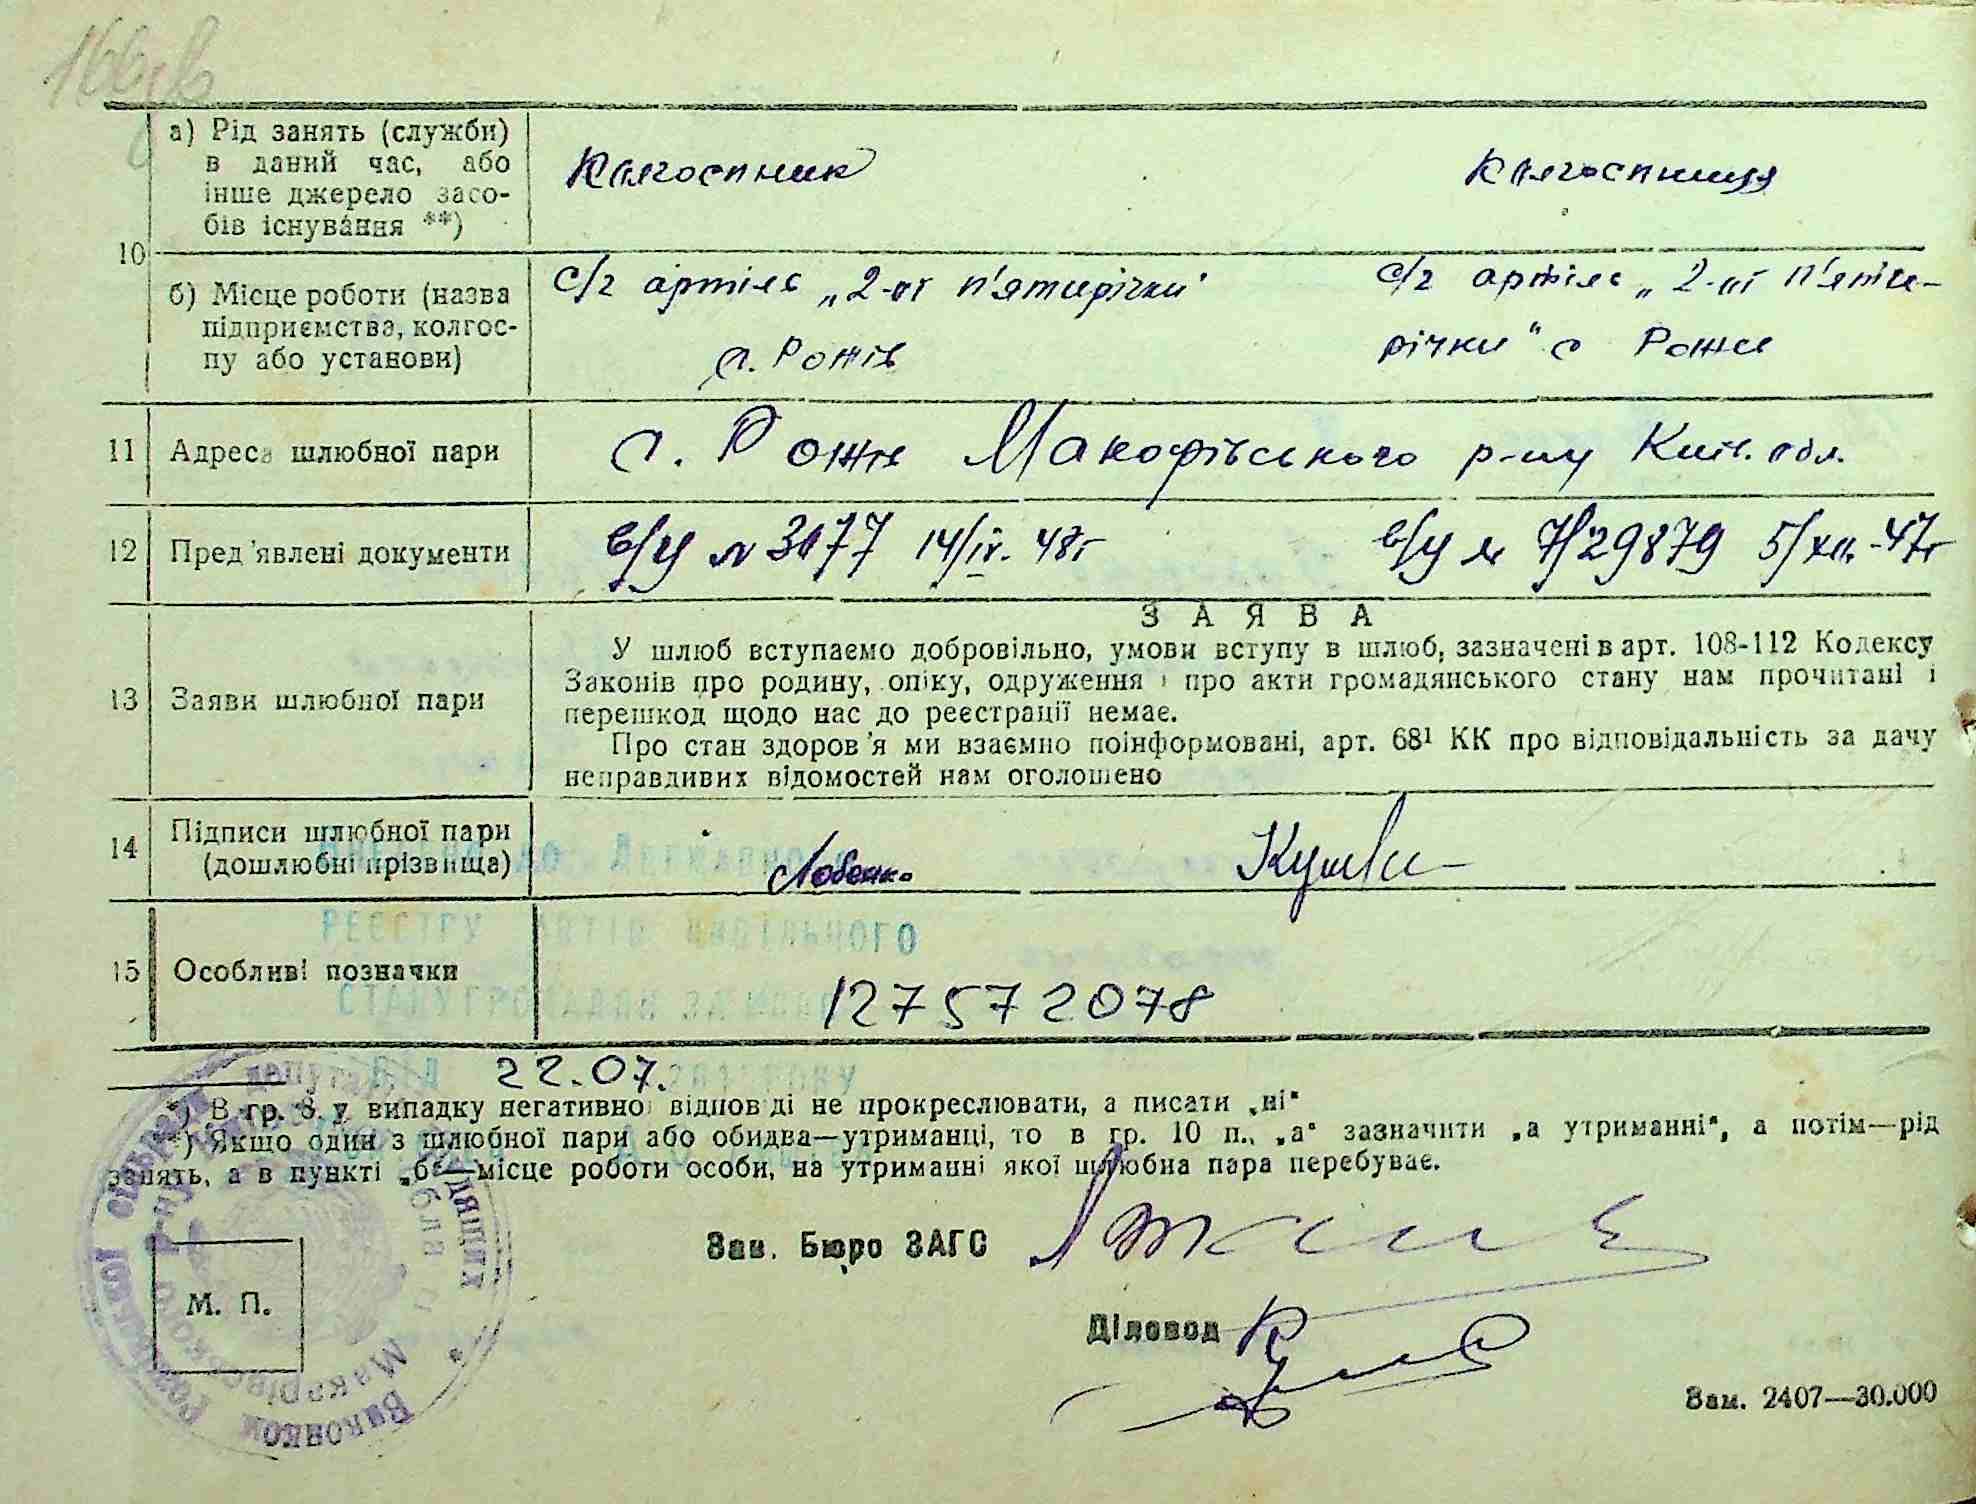 10
а) Рід занять (служби)
в даний час, або
інше джерело засо-
бів існування **)
Колгоспник
Колгоспниця
б) Місце роботи (назва
підприємства, колгос-
пу або установи)
с/г артіль „2-ої п'ятирічки"
с. Рожів
с/г артіль „2-ої п'яти-
річки" с Рожів
11
Адреса шлюбної пари
с. Рожів Макарівського р-ну Київ. обл.
12
Пред'явлені документи
в/у № 3177 14/IV. 48г
в/у № 7/29879 5/XII.-47г
13
Заяви шлюбної пари
ЗАЯВА
У шлюб вступаємо добровільно, умови вступу в шлюб, зазначені в арт. 108-112 Кодексу
Законів про родину, опіку, одруження і про акти громадянського стану нам прочитані і
перешкод щодо нас до реєстрації немає.
Про стан здоров'я ми взаємно поінформовані, арт. 68¹ КК про відповідальність за дачу
неправдивих відомостей нам оголошено
14
Підписи шлюбної пари
(дошлюбні прізвища)
Лобенко
15
Особливі позначки
РЕЄСТРУ АКТІВ ЦИВІЛЬНОГО
СТАНУ ГРОМАДЯН ЗА
127572078
22.07.
*) В гр. 8 у випадку негативної відповіді не прокреслювати, а писати „ні"
**) Якщо один з шлюбної пари або обидва—утриманці, то в гр. 10 п., „а" зазначити „а утриманні", а потім—рід
занять, а в пункті „б"—місце роботи особи, на утриманні якої шлюбна пара перебуває.
Зав. Бюро ЗАГС
М. П.
Діловод
Зам. 2407—30.000